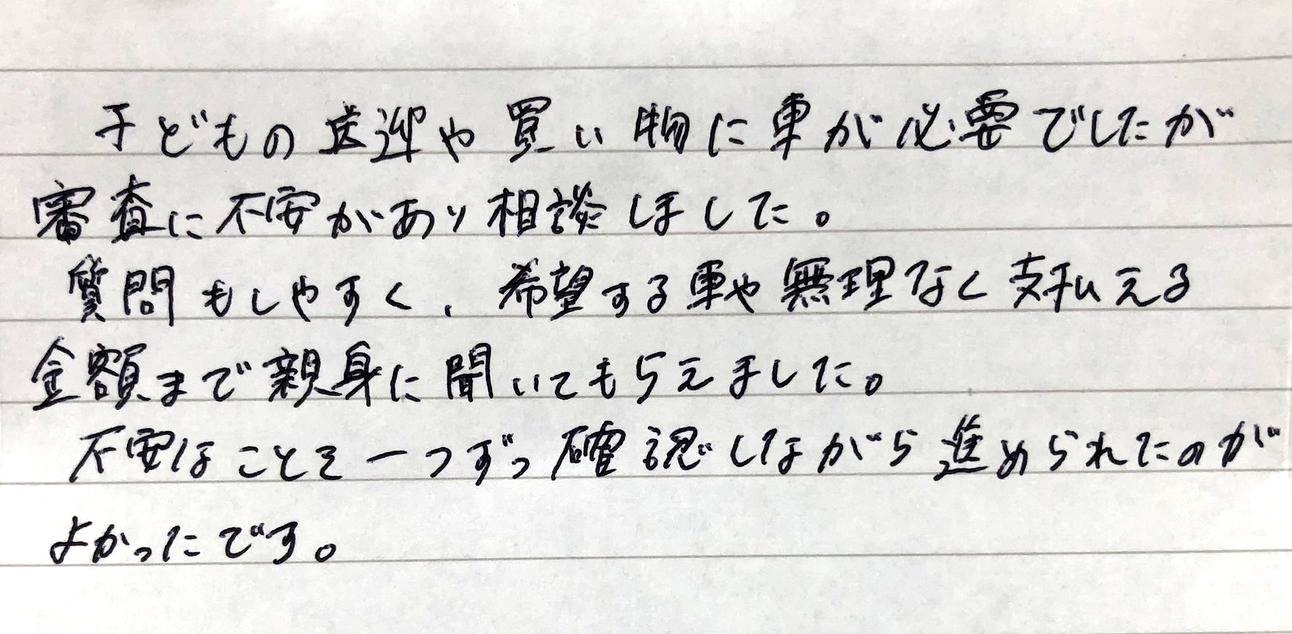 子どもの送迎や買い物に車が必要でしたが
審査に不安があり相談しました。
質問もしやすく、希望する車や無理なく支払える
金額まで親身に聞いてもらえました。
不安なことを一つずつ確認しながら進められたのが
よかったです。